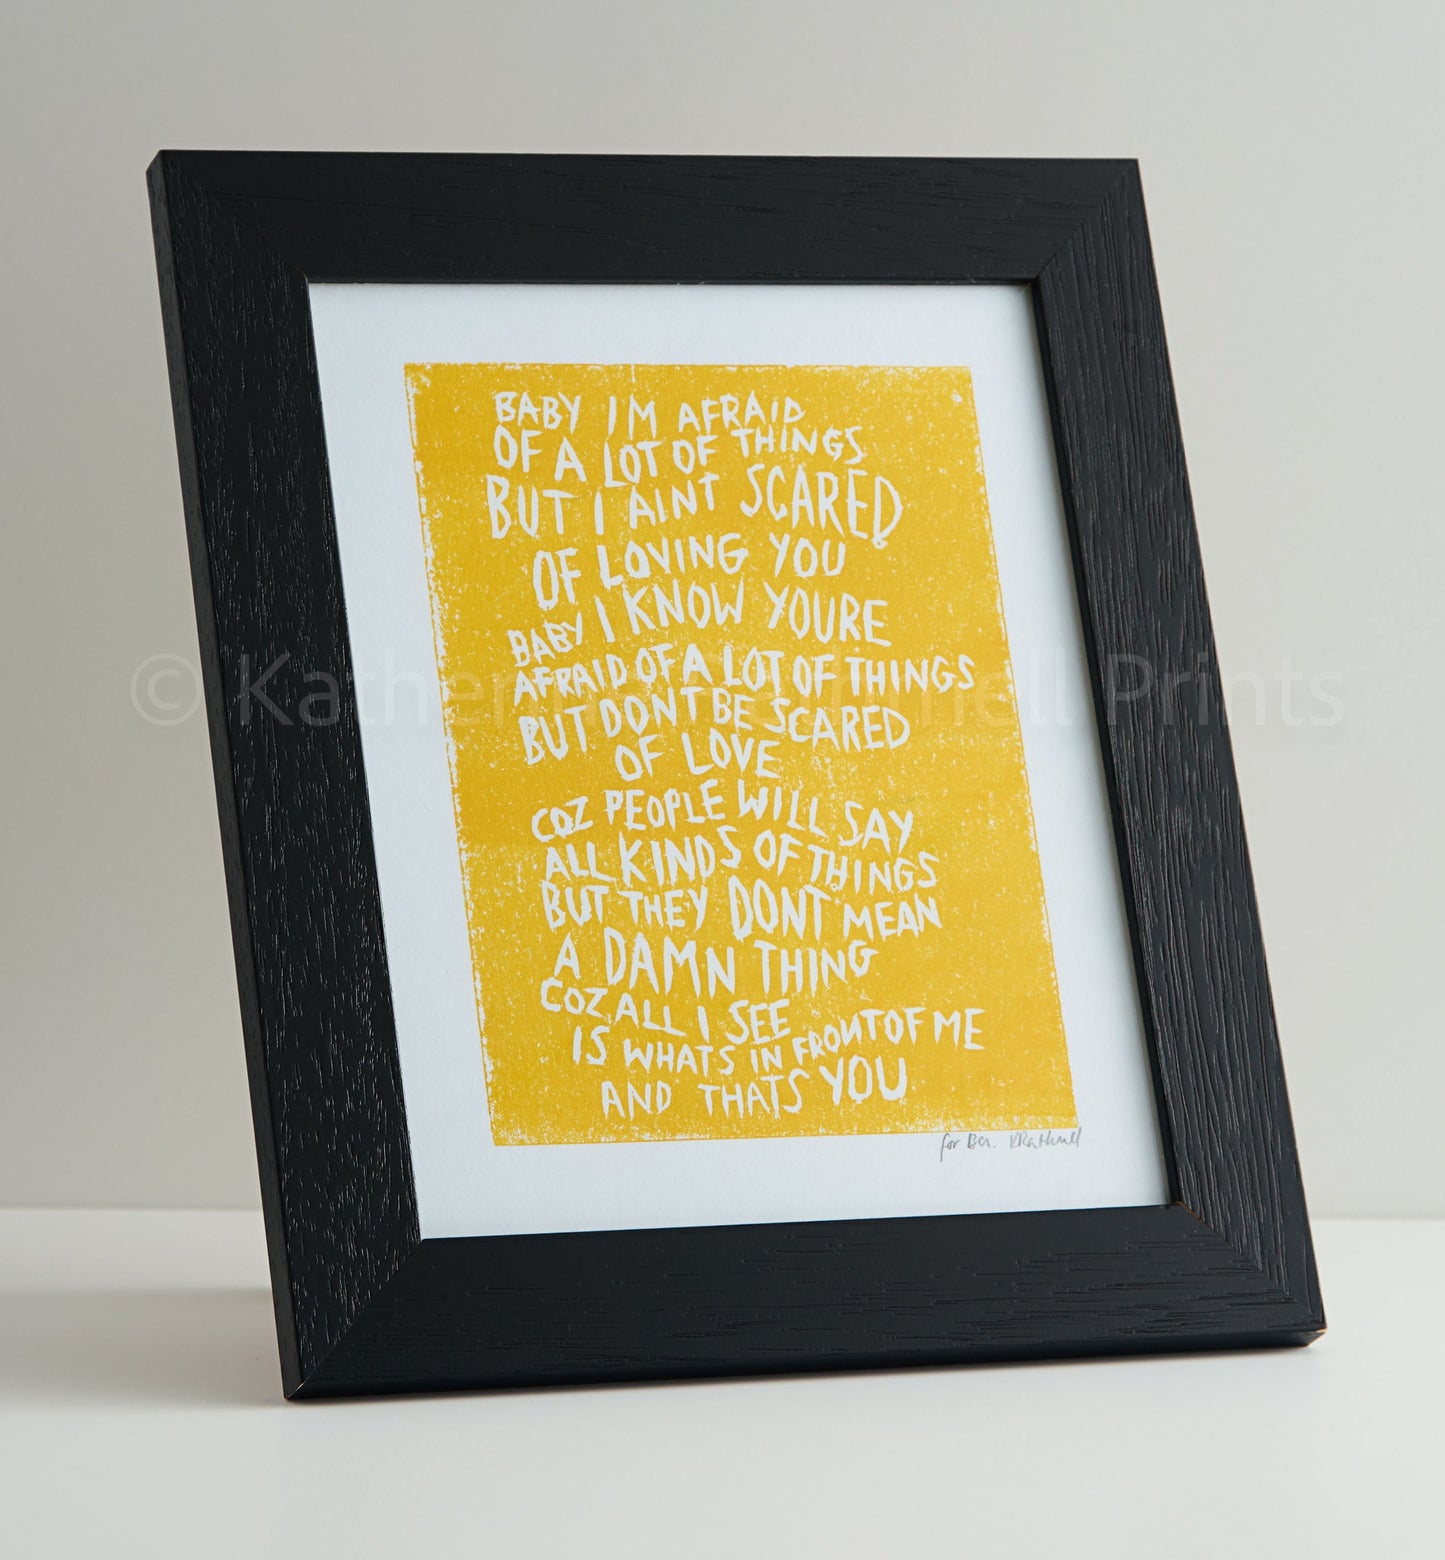 BABY IM AFRAID
OF A LOT OF THINGS
BUT I AINT SCARED
OF LOVING YOU
BABY I KNOW YOURE
AFRAID OF A LOT OF THINGS
BUT DONT BE SCARED
OF LOVE
COZ PEOPLE WILL SAY
ALL KINDS OF THINGS
BUT THEY DONT MEAN
A DAMN THING
COZ ALL I SEE
IS WHATS IN FRONT OF ME
AND THATS YOU
for Ben.
© Prints